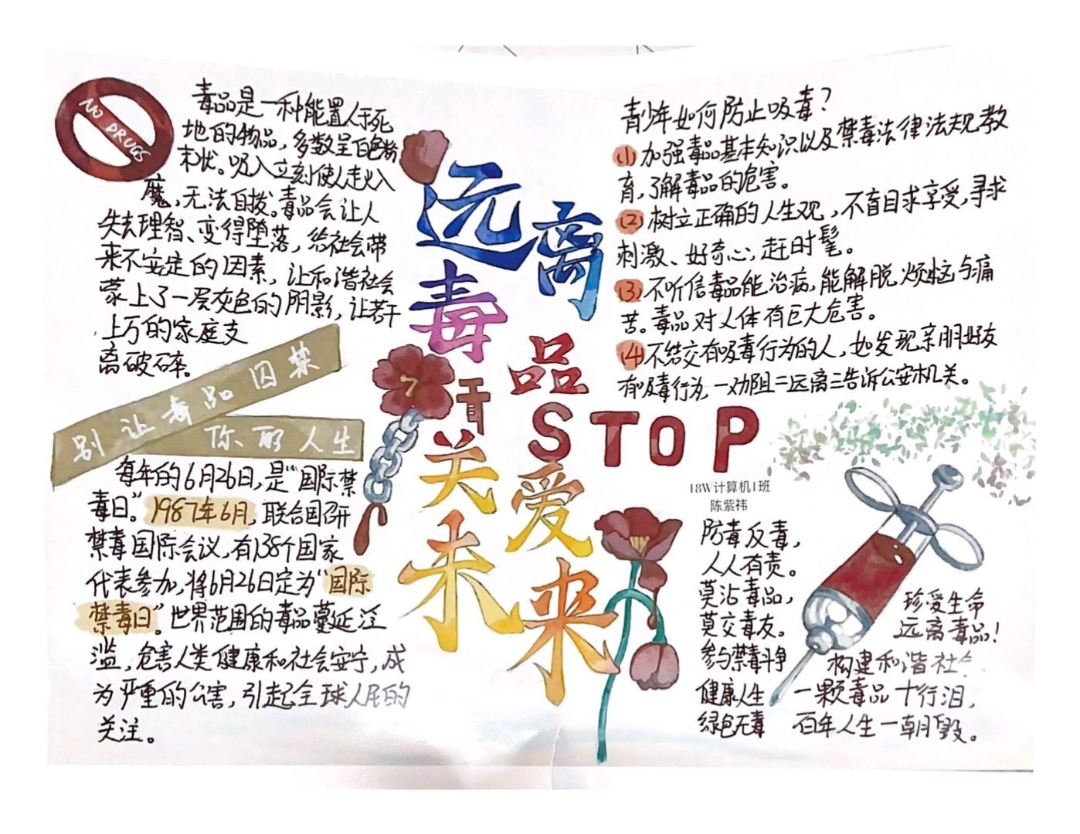 NO DRUGS
毒品是一种能置人于死
地的物品，多数呈白色粉
末状。吸入立刻使人走火入
魔，无法自拔。毒品会让人
失去理智、变得堕落，给社会带
来不安定的因素，让和谐社会
蒙上了一层灰色的阴影，让若干
上万的家庭支
离破碎。
别让毒品囚禁
你的人生
每年的6月26日，是“国际禁
毒日”。1987年6月，联合国研
禁毒国际会议，有138个国家
代表参加，将6月26日定为“国际
禁毒日”。世界范围的毒品蔓延泛
滥，危害人类健康和社会安宁，成
为严重的公害，引起全球人民的
关注。
远离
毒品
STOP
关爱
未来
青少年如何防止吸毒？
(1)加强毒品基本知识以及禁毒法律法规教
育，了解毒品的危害。
(2)树立正确的人生观，不盲目求享受，寻求
刺激、好奇心，赶时髦。
(3)不听信毒品能治病，能解脱烦恼与痛
苦。毒品对人体有巨大危害。
(4)不结交有吸毒行为的人，如发现亲朋好友
有吸毒行为一劝阻二远离三告诉公安机关。
18W计算机1班
陈紫祎
防毒反毒，
人人有责。
莫沾毒品，
莫交毒友。
参与禁毒斗争
健康人生
绿色无毒
珍爱生命
远离毒品！
构建和谐社会
一颗毒品十行泪，
百年人生一朝毁。